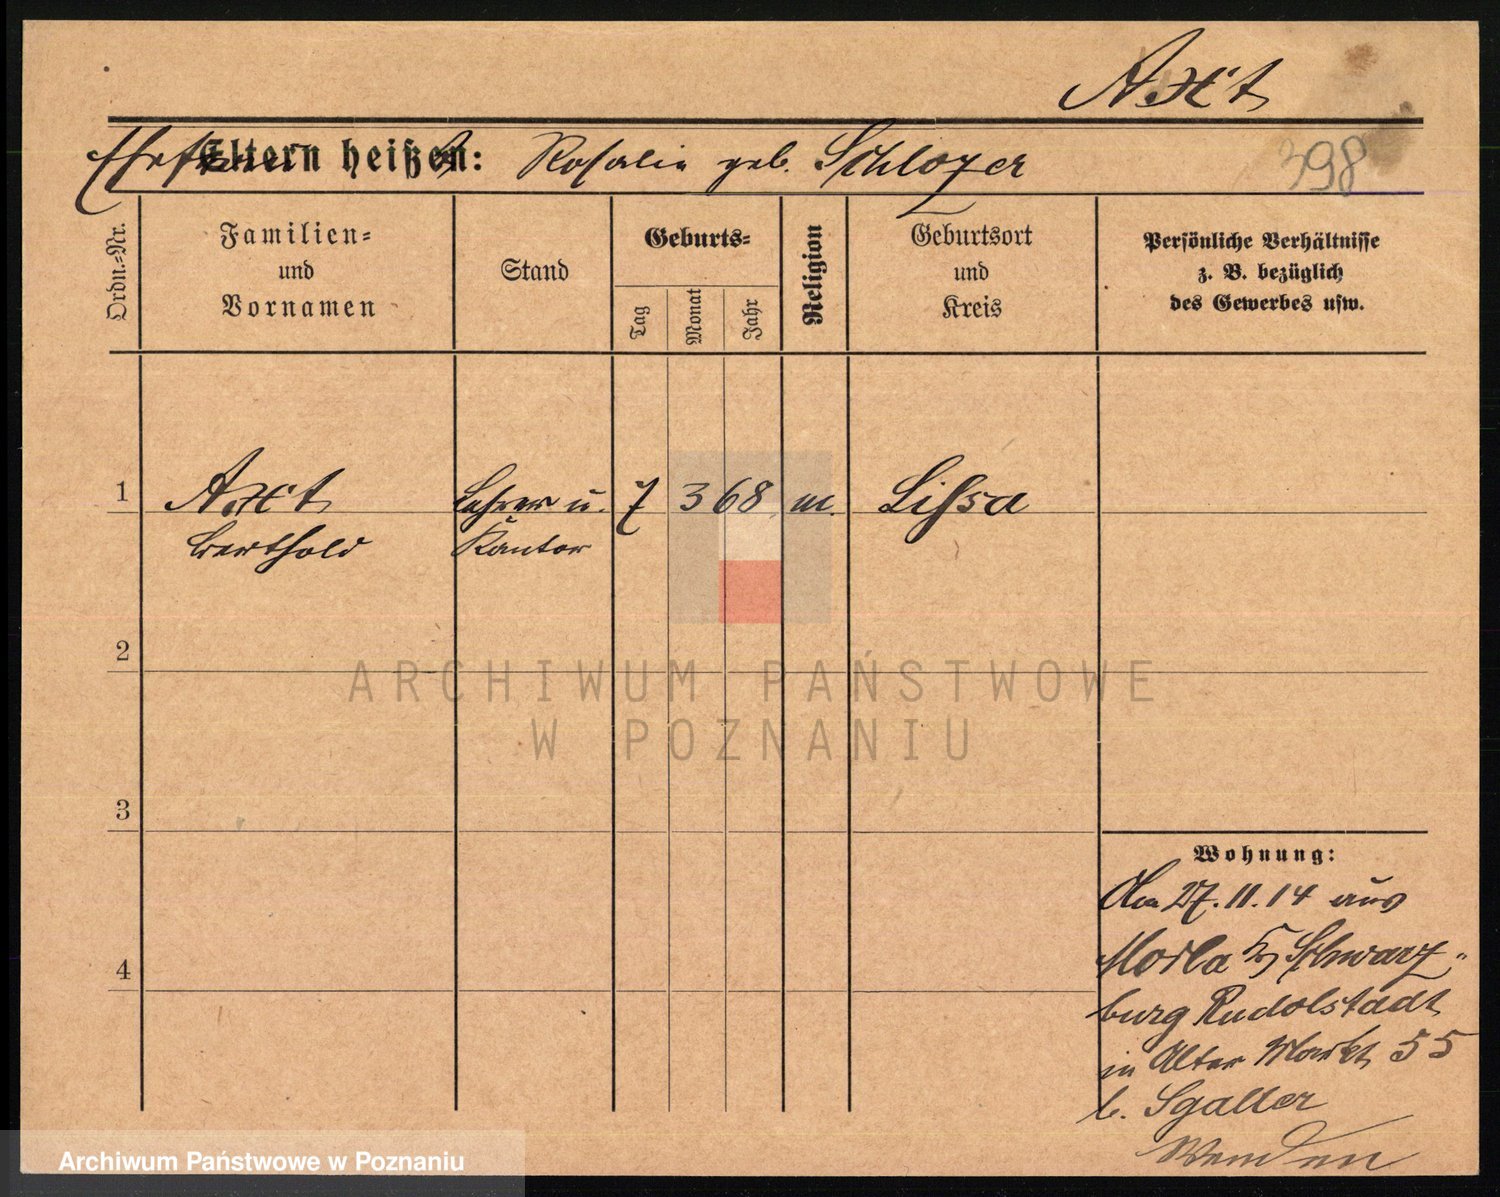 Axt
Eltern heißen: Rosalie geb. Schlozer
398
Ordn.-Nr.
Familien-
und
Vornamen
Stand
Geburts-
Tag
Monat
Jahr
Religion
Geburtsort
und
Kreis
Persönliche Verhältnisse
z. B. bezüglich
des Gewerbes usw.
1 Axt Lehrer u. 7 3 68 m. Lissa
Berthold Kantor
2
ARCHIWUM PAŃSTWOWE
W POZNANIU
3
Wohnung:
Am 27.11.14 aus
4
Schwarz-
burg Rudolstadt
in Alter Markt 55
b. Sgaller
Wenden
Archiwum Państwowe w Poznaniu